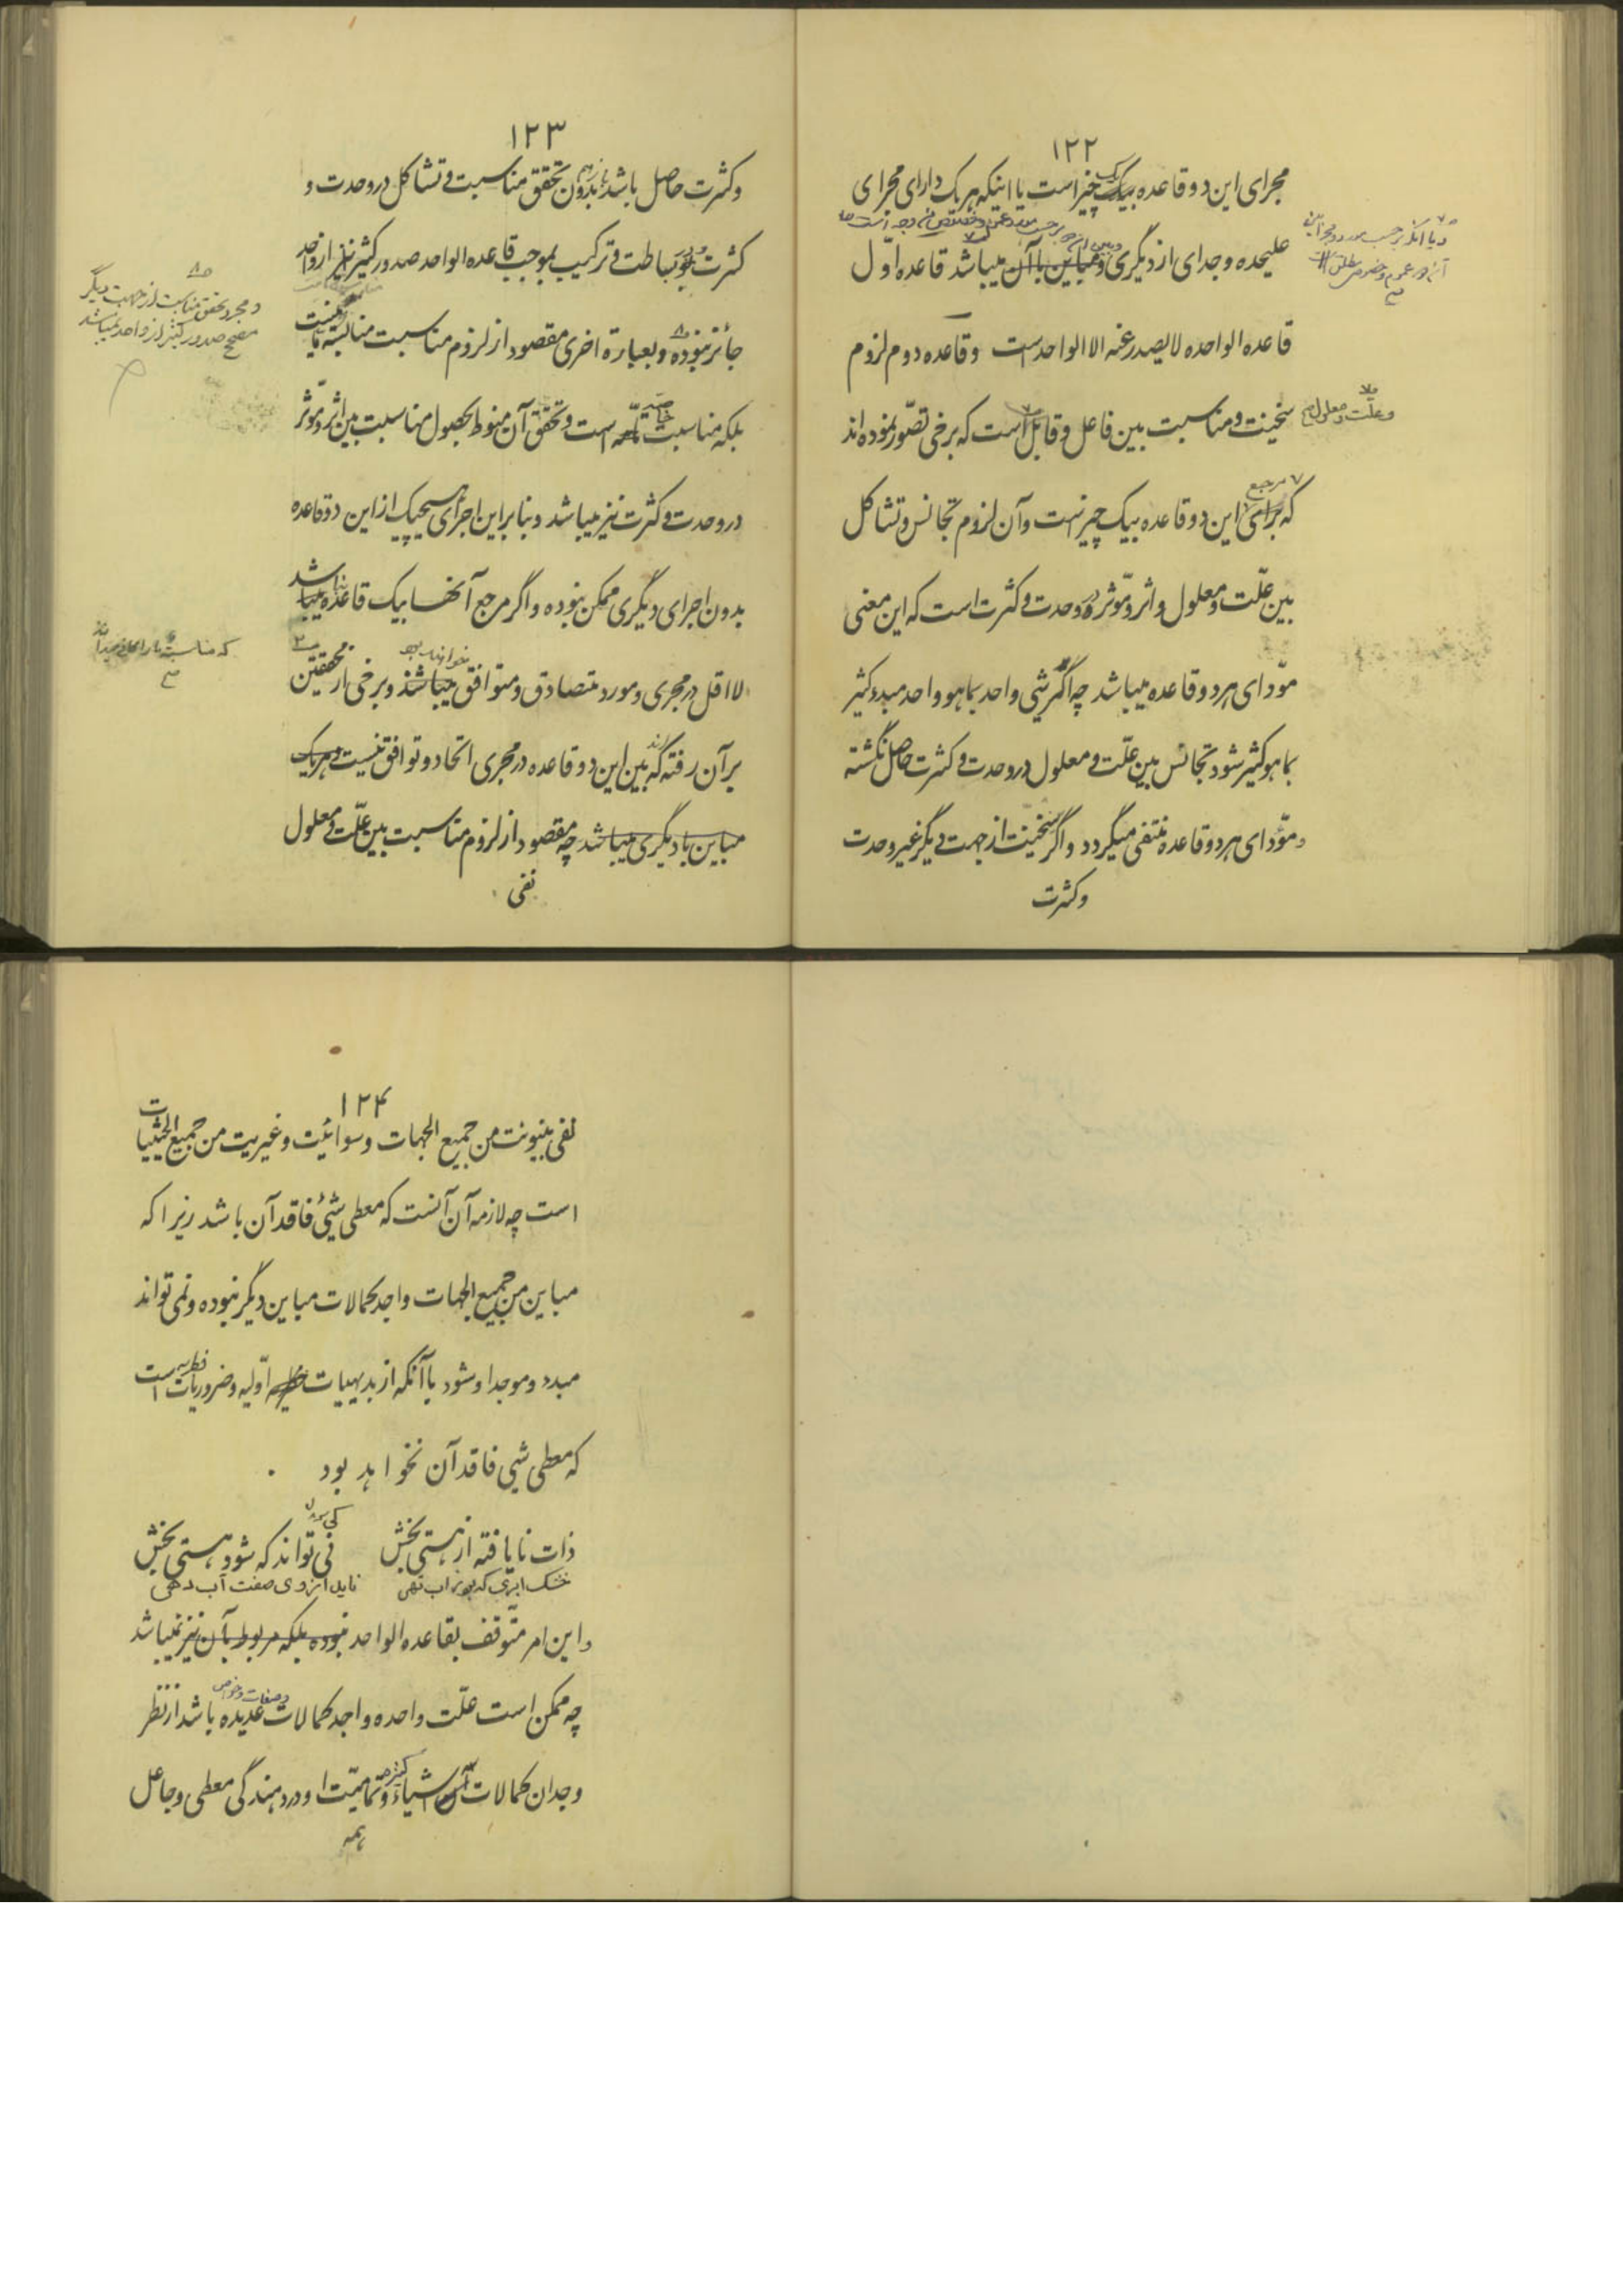 ۱۲۲
مجرای این دو قاعده یک چیز است یا اینکه هریک دارای مجرای
علیحده وجدای از دیگری و مباین با آن میباشد قاعده اوّل
قاعده الواحده لا یصدر عنه الا الواحد است وقاعده دوم لزوم
سنخیت ومناسبت بین فاعل وقابل است که برخی تصّور نموده‌اند
وعلّت ومعلول
مرجع
که برای این دو قاعده بیک چیز است وآن لزوم تجانس وتشاکل
بین علّت ومعلول واثر ومّوثر در وحدت وکثرت است که این معنی
موّدای هر دو قاعده میباشد چه اگر شیی واحد بما هو واحد مبدء کثیر
بما هو کثیر شود تجانس بین علّت ومعلول در وحدت وکثرت حاصل نگشته
ومّودای هر دو قاعده منتفی میگردد واگر سنخیت از جهت دیگر غیر وحدت
وکثرت
۱۲۳
وکثرت حاصل باشد باز هم بدون تحقق مناسبت وتشاکل در وحدت و
کثرت ودر بساطت وترکیب بموجب قاعده الواحد صدور کثیر نیز از واحد
ومجرد تحقق مناسبت از جهت دیگر
مصحح صدور کثیر از واحد نمیباشد
جائز نبوده وبعبارة اخری مقصود از لزوم مناسبت مناسبة ما نیست
بلکه مناسبت تامّه است وتحقق آن منوط بحصول مناسبت بین اثر ومّوثر
خاصه
در وحدت وکثرت نیز میباشد وبنابر این اجرای هیچیک از این دو قاعده
بدون اجرای دیگری ممکن نبوده واگر مرجع آنها بیک قاعده نباشد
لا اقل در مجری ومورد متصادق ومتوافق میباشند وبرخی از محققین
خواهند بود
بر آن رفته‌اند که بین این دو قاعده در مجری اتحاد وتوافق نیست وهریک
مباین با دیگری میباشد چه مقصود از لزوم مناسبت بین علّت ومعلول
نفی
۱۲۴
نفی بینونت من جمیع الجهات وسوائیت وغیریت من جمیع الحیثیات
است چه لازمه آن آنست که معطی شیئ فاقد آن باشد زیرا که
مباین من جمیع الجهات واجد کمالات مباین دیگر نبوده ونمی تواند
مبدء وموجد او شود با آنکه از بدیهیات اوّلیه وضروریات فطریه است
که معطی شیی فاقد آن نخواهد بود .
ذات نایافته از هستی بخش کی تواند که شود هستی بخش
خشک ابری که بود ز آب تهی ناید از وی صفت آب دهی
واین امر متّوقف بقاعده الواحد نبوده بلکه مربوط بآن نیز نمیباشد
چه ممکن است علّت واحده واجد کمالات وصفات وخواص عدیده باشد از نظر
وجدان کمالات اشیاء کثیره وتمامیّت او در دهندگی معطی وجاعل
همه